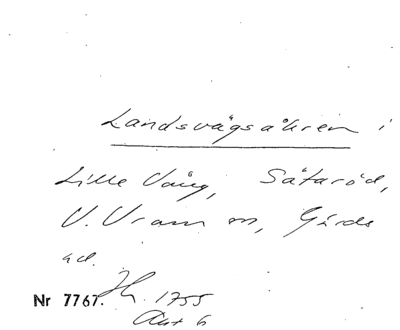 Landsvägsåkren i
Lille Väng, Sätaröd,
V. Vram sn, Gärds
hd.
Nr 7767. Jh. 1755
Akt 6